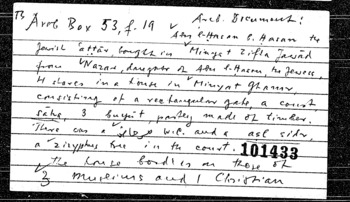 TS Arab Box 53, f. 19 Arab. Document:
Abu l-Hasan b. Hasan the
Jewish ʿaṭṭār bought in Minyat Zifta Jawād
from Nazar, daughter of Abu l-Hasan, the Jewess,
4 shares in a house in Minyat Ghamr,
consisting of a rectangular gate, a court
3 buyūt partly made of timber.
There was a w.c. and a asl sidr,
a zizyphus tree in the court. 101433
The house borders on those of
3 muslims and 1 Christian